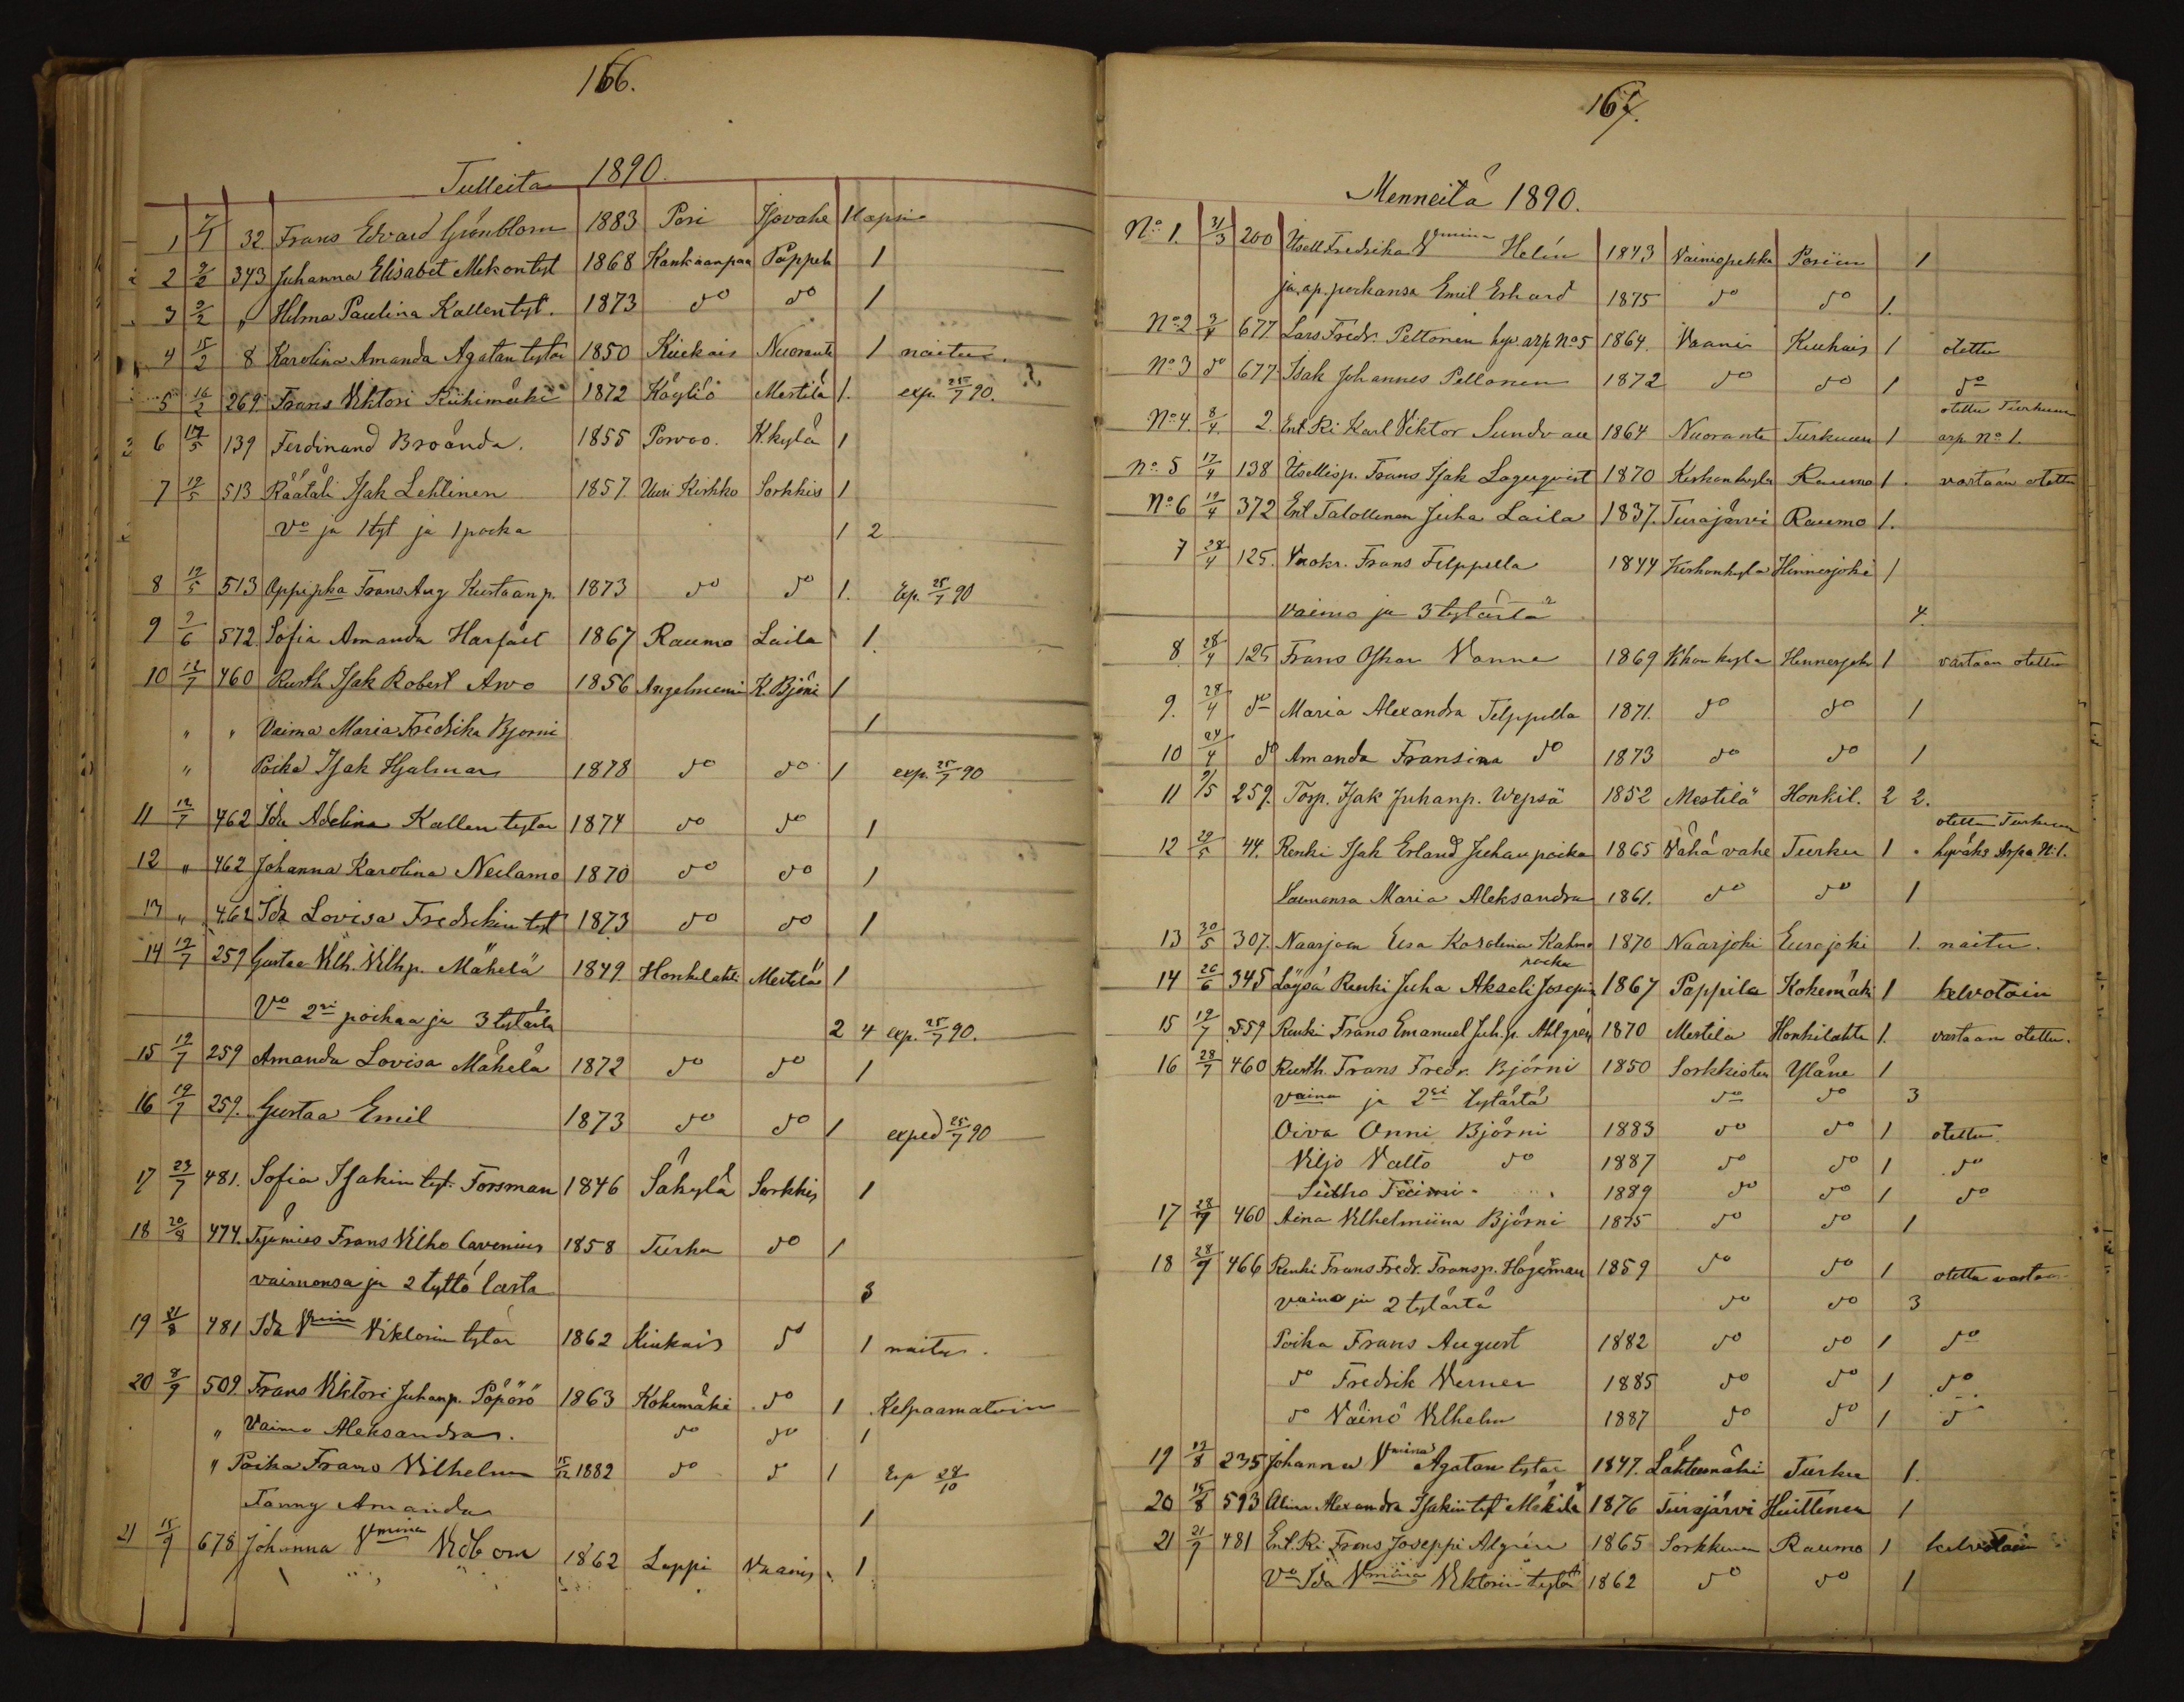 166.
Tulleita 1890.
1 7/1 32 Frans Edvard Grönblom 1883 Pori Isovahe 1 lapsi
2 2/2 343 Juhanna Elisabet Mikontyt 1868 Kankaanpaa Pappela 1
3 2/2 " Hilma Paulina Kallentyt. 1873 do do 1
4 15/2 8 Karolina Amanda Agatan tytär 1850 Kiukais Nuoranti 1 naitu.
5 16/2 269. Frans Viktori Riihimäki 1872 Köyliö Mestilä 1. exp. 25/7 90.
6 17/5 139 Ferdinand Broända. 1855 Porvoo. K.kylä 1
7 19/5 513 Räätäli Isak Lehtinen 1857. Uusi Kirkko Sorkkis 1
Vo ja 1 tyt ja 1 poika 1 2
8 19/5 513 Oppipka Frans Aug Kustaanp. 1873 do do 1. Exp. 25/7 90
9 7/6 572. Sofia Amanda Harfält 1867 Raumo Laila 1.
10 12/7 460 Rusth Isak Robert Arvo 1856 Angelniemi K. Björni 1
" " Vaimo Maria Fredrika Bjorni 1
" Poika Isak Hjalmar 1878 do do 1 exp. 25/7 90
11 12/7 462 Ida Adelina Kallen tytar 1874 do do 1
12 " 462 Johanna Karolina Neulamo 1870 do do 1
13 " 462 Ida Lovisa Fredrikin tyt 1873 do do 1
14 19/7 259 Gustaa Vilh. Vilhp. Mähelä 1849. Honkilahti Mestilä 1
Vo 2si poikaa ja 3 tytärtä 2 4 exp. 25/7 90.
15 19/7 259 Amanda Lovisa Mähelä 1872 do do 1
16 19/7 259. Gustaa Emil 1873 do do 1 exped 25/7 90
17 23/7 481. Sofia Isakin tyt. Forsman 1846 Säkylä Sorkkis 1
18 20/8 474. Työmies Frans Vilho Cavenius 1858 Turku do 1
vaimonsa ja 2 tyttö lasta 3
19 21/8 481 Ida Vmina Viktorin tytär 1862 Kiukais do 1 naitu.
20 8/9 509. Frans Viktori Juhanp. Pöpörö 1863 Kokemäki do 1 Kelpaamatoin
" Vaimo Aleksandra. do do 1
" Poika Frans Vilhelm 15/12 1882 do do 1 Exp 28/10
Fanny Amanda 1
21 15/9 678 Johanna Vmina 1862 Lappi Vaanis 1
167.
Menneitä 1890.
No 1. 31/3 200 Itsell Fredrika Vmina Helin 1843 Vaimopekka Poriin 1
ja ap. poikansa Emil Erhard 1875 do do 1.
No 2 3/4 677. Lars Fredr. Peltonen hyv. arp. No 5 1864. Vaani Kiukais 1 otettu
No 3 do 677 Isak Johannes Peltonen 1872 do do 1 do
No 4. 8/4. 2. Ent. Ri Karl Viktor Sundvall 1864 Nuoranti Turkuun 1 otettu Turkuun arp. No 1.
No 5 17/4 138 Itsellisp. Frans Isak Lagerqvist 1870 Kirkonkyla Raumo 1. vastaan otettu
No 6 19/4 372 Ent Talollinen Juha Laila 1837. Turajärvi Raumo 1.
7 28/4 125. Vuokr. Frans Filppulla 1844 Kirkonkyla Hinnerjoki 1
Vaimo ja 3 tytärtä 4.
8. 28/4 125 Frans Oskar Vanne 1869 Kkon kyla Hinnerjoki 1 vastaan otettu
9. 28/4 do Maria Alexandra Felppulla 1871. do do 1
10 24/4 do Amanda Fransina do 1873 do do 1
11 9/5 259. Torp. Isak Juhanp. Wepsä 1852 Mestilä Honkil. 2 2.
12 29/5 44. Renki Isak Erland Juhan poika 1865 Vähä vahe Turku 1. otettu Turkuun hyväks Arpa N:1.
Vaimonsa Maria Aleksandra 1861. do do 1
13 30/5 307. Naarjoen Eeva Karolina Kahma 1870 Naarjoki Eurajoki 1. naitu.
14 26/6 345 Löysä Renki Juha Akseli Josepin poika 1867 Pappila Kokemäki 1 kelvotoin
15 19/7 559 Renki Frans Emanuel Juh.p. Ahlgren 1870 Mestila Honkilahti 1. vastaan otettu.
16 28/7 460 Rusth. Frans Fredr. Björni 1850 Sorkkisten Yläne 1
vaimo ja 2si tytärtä do do 3
Oiva Onni Björni 1883 do do 1 otettu
Viljo Valto do 1887 do do 1 do
Sulho Toimi 1889 do do 1 do
17 28/7 460 Aina Vilhelmiina Björni 1875 do do 1
18 28/7 466 Renki Frans Fredr. Fransp. Högerman 1859 do do 1 otettu vastaan
vaimo ja 2 tytärtä do do 3
Poika Frans August 1882 do do 1 do
do Fredrik Verner 1885 do do 1 do
do Väinö Vilhelm 1887 do do 1 do
19 12/8 235 Johanna Vmina Agatan tytar 1847. Lähteenmäki Turku 1.
20 15/8 593 Alina Alexandra Isakin tyt Mäkilä 1876 Turajärvi Huittinen 1
21 21/9 481 Ent. Ri. Frans Joseppi Algrén 1865 Sorkkinen Raumo 1 kelvotoin
Vo Ida Vmina Viktorin tytär 1862 do do 1